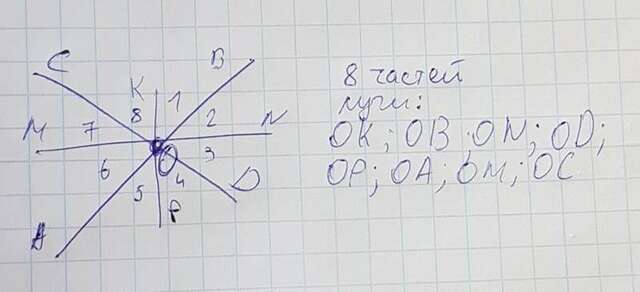 C
B
K
1
8
2
M
7
N
3
6
O
4
5
D
P
A
8 частей
лучи:
OK; OB; ON; OD;
OP; OA; OM; OC